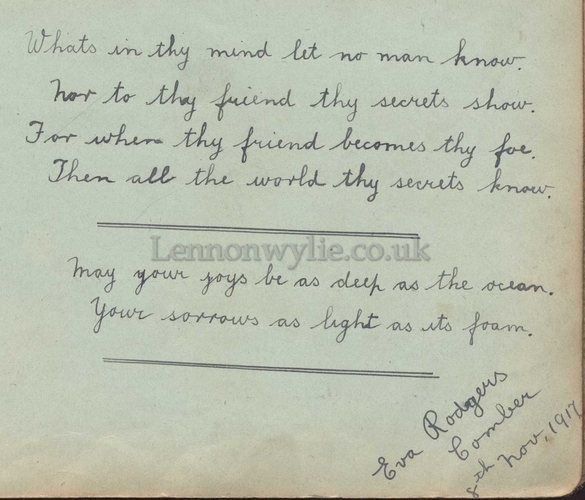 Whats in thy mind let no man know.
Nor to thy friend thy secrets show.
For when thy friend becomes thy foe.
Then all the world thy secrets know.
Lennonwylie.co.uk
May your joys be as deep as the ocean.
Your sorrows as light as its foam.
Eva Rodgers
Comber
8th Nov, 1917